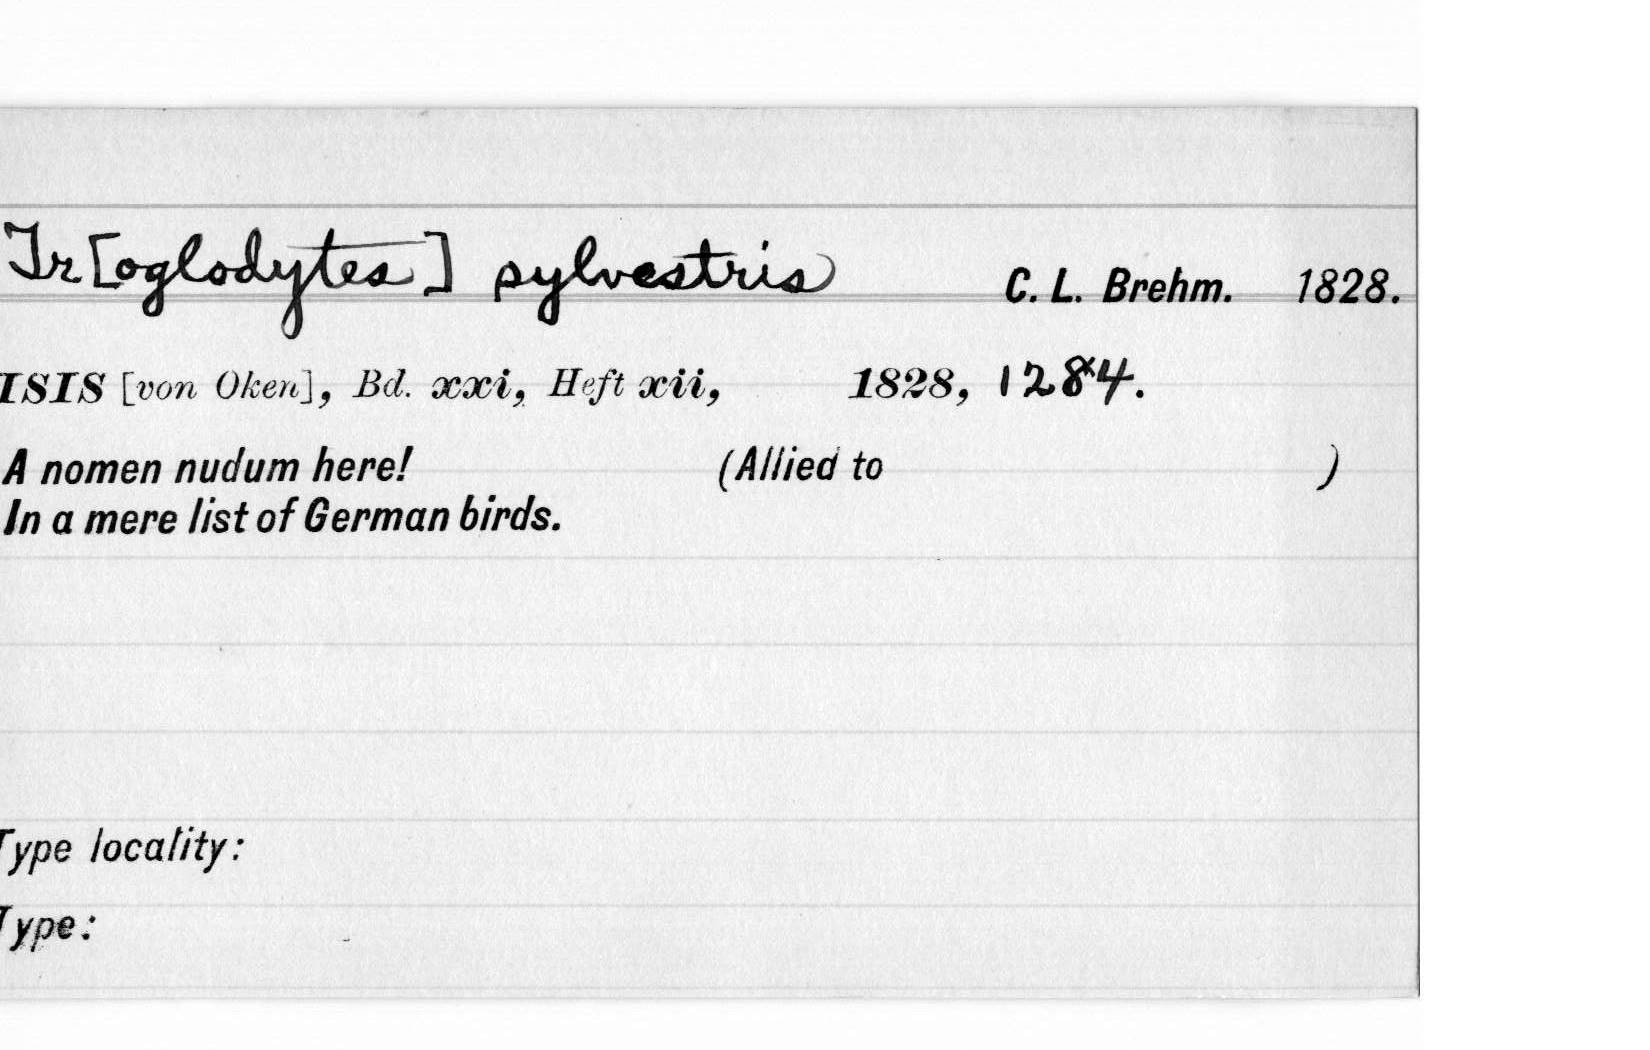 Tr[oglodytes] sylvestris C. L. Brehm. 1828.
ISIS [von Oken], Bd. xxi, Heft xii, 1828, 1284.
A nomen nudum here! (Allied to )
In a mere list of German birds.
Type locality:
Type: